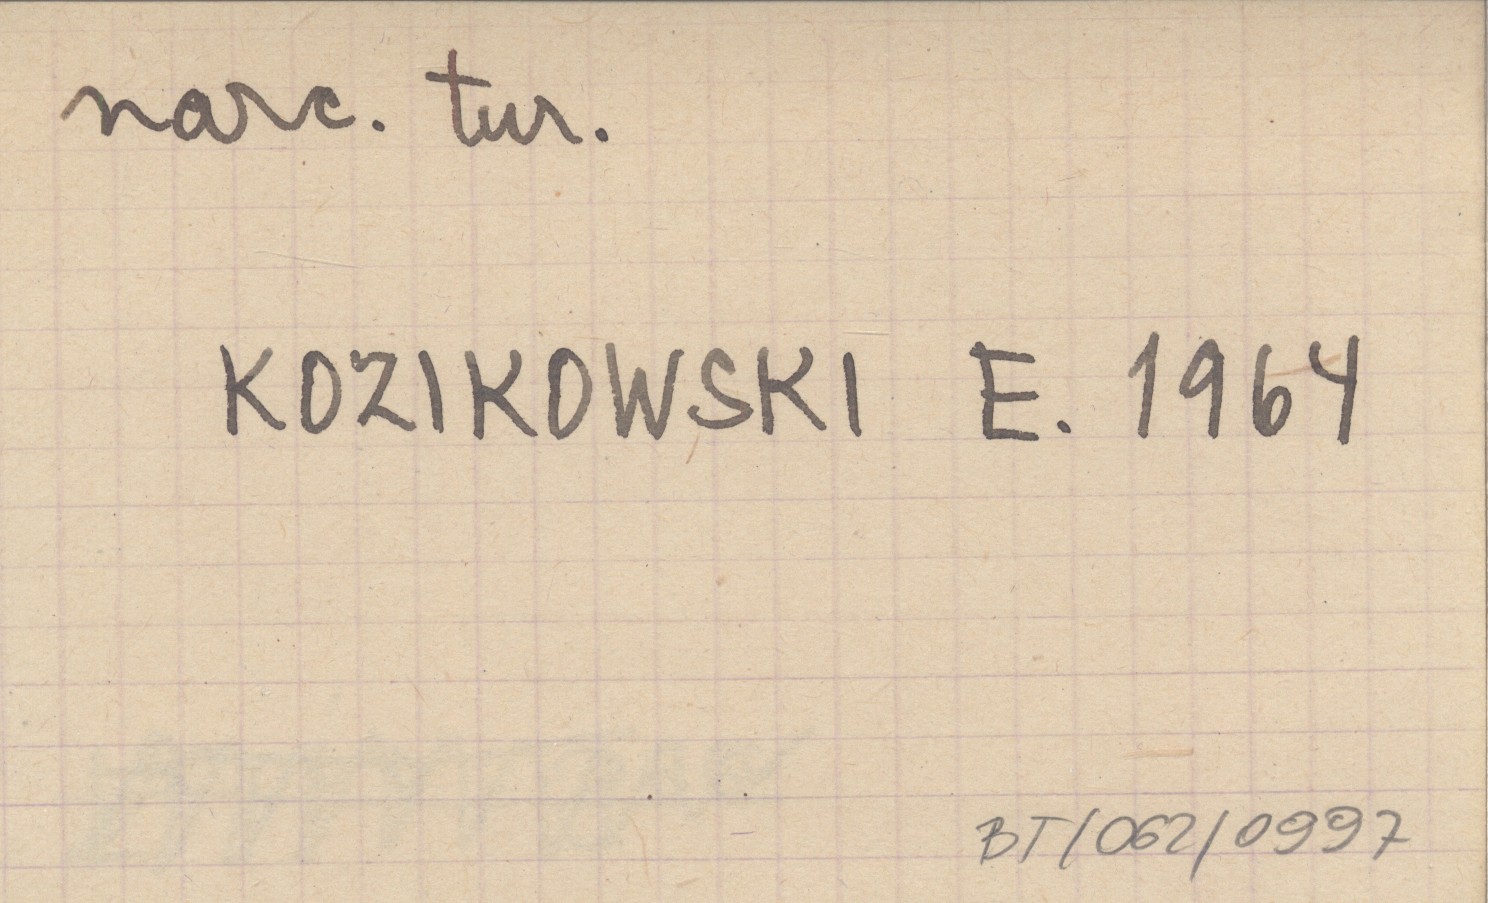 narc. tur.
KOZIKOWSKI E. 1964
BT/062/0997